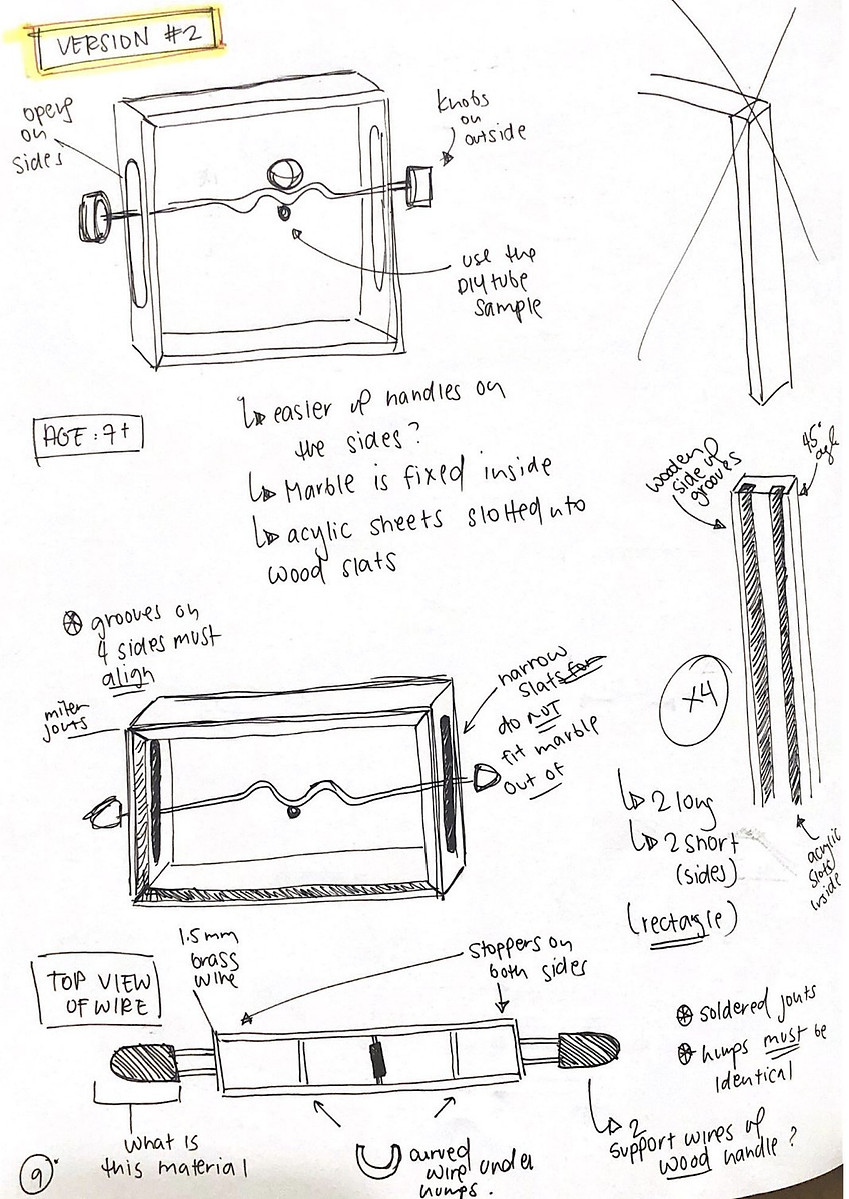 VERSION #2
opens
on
sides
knobs
on
outside
use the
DIY tube
sample
AGE: 7+
↳ easier w/ handles on
the sides?
↳ Marble is fixed inside
↳ acylic sheets slotted into
wood slats
wooden
side w/
grooves
45°
agl
⊛ grooves on
4 sides must
align
miter
jouts
narrow
slats for
do NOT
fit marble
out of
x4
↳ 2 long
↳ 2 short
(sides)
(rectagle)
acylic
slots
inside
TOP VIEW
OF WIRE
1.5mm
brass
wire
stoppers on
both sides
⊛ soldered jouts
⊛ humps must be
identical
what is
this material
curved
wire under
humps.
↳ 2
support wires w/
wood handle?
9